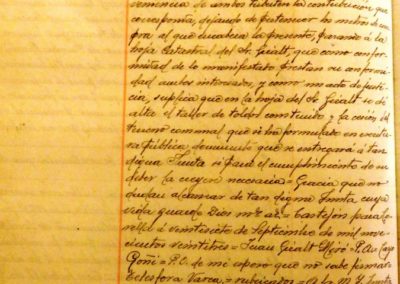 vemencia de ambos tributen la contribucion que
corresponda, dejando de pertenecer los metros de
pra al que encabeza la presente, pasando á la
hoja catastral del Sr. Gialt, que como confor
midad de lo manifestado prestan su conformi
dad ambos interesados, y como un acto de justi
cia, suplica que en la hoja del Sr Gialt se dé
alta el taller de toldos construido y la cesión del
terreno comunal que se ha formulado en escritu
ra pública, documento que se entregará á tan
digna Junta si para el cumplimiento de su
deber la creyere necesaria = Gracia que no
dudan alcanzar de tan digna Junta cuya
vida guarde Dios ms. as. = Castejón para
á veintisiete de Septiembre de mil nove
cientos veintitres = Juan Gialt Moró = P.A.
Goñi = P.O. de mi esposo que no sabe firmar
Telesfora = = A la M. Y. Junta